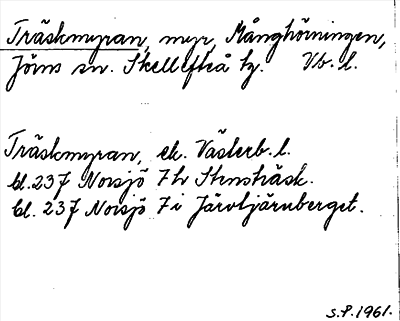 Träskmyran, myr, Månghörningen,
Jörns sn. Skellefteå tg. Vb. l.
Träskmyran, ek. Västerb. l.
bl. 237 Norsjö 7h Stensträsk.
bl. 237 Norsjö 7i Järvtjärnberget.
S.P. 1961.